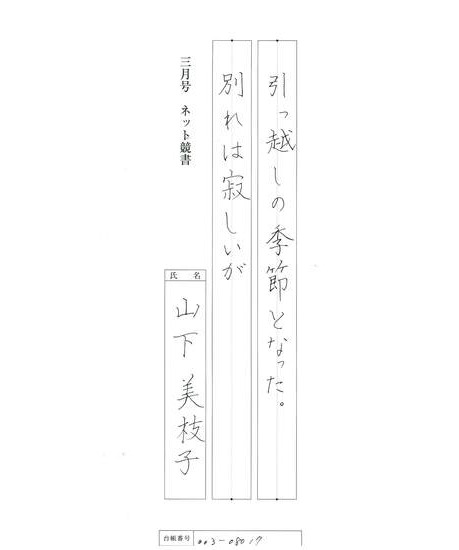 引っ越しの季節となった。
別れは寂しいが
三月号 ネット競書
氏名
山下 美枝子
台帳番号 003-08017